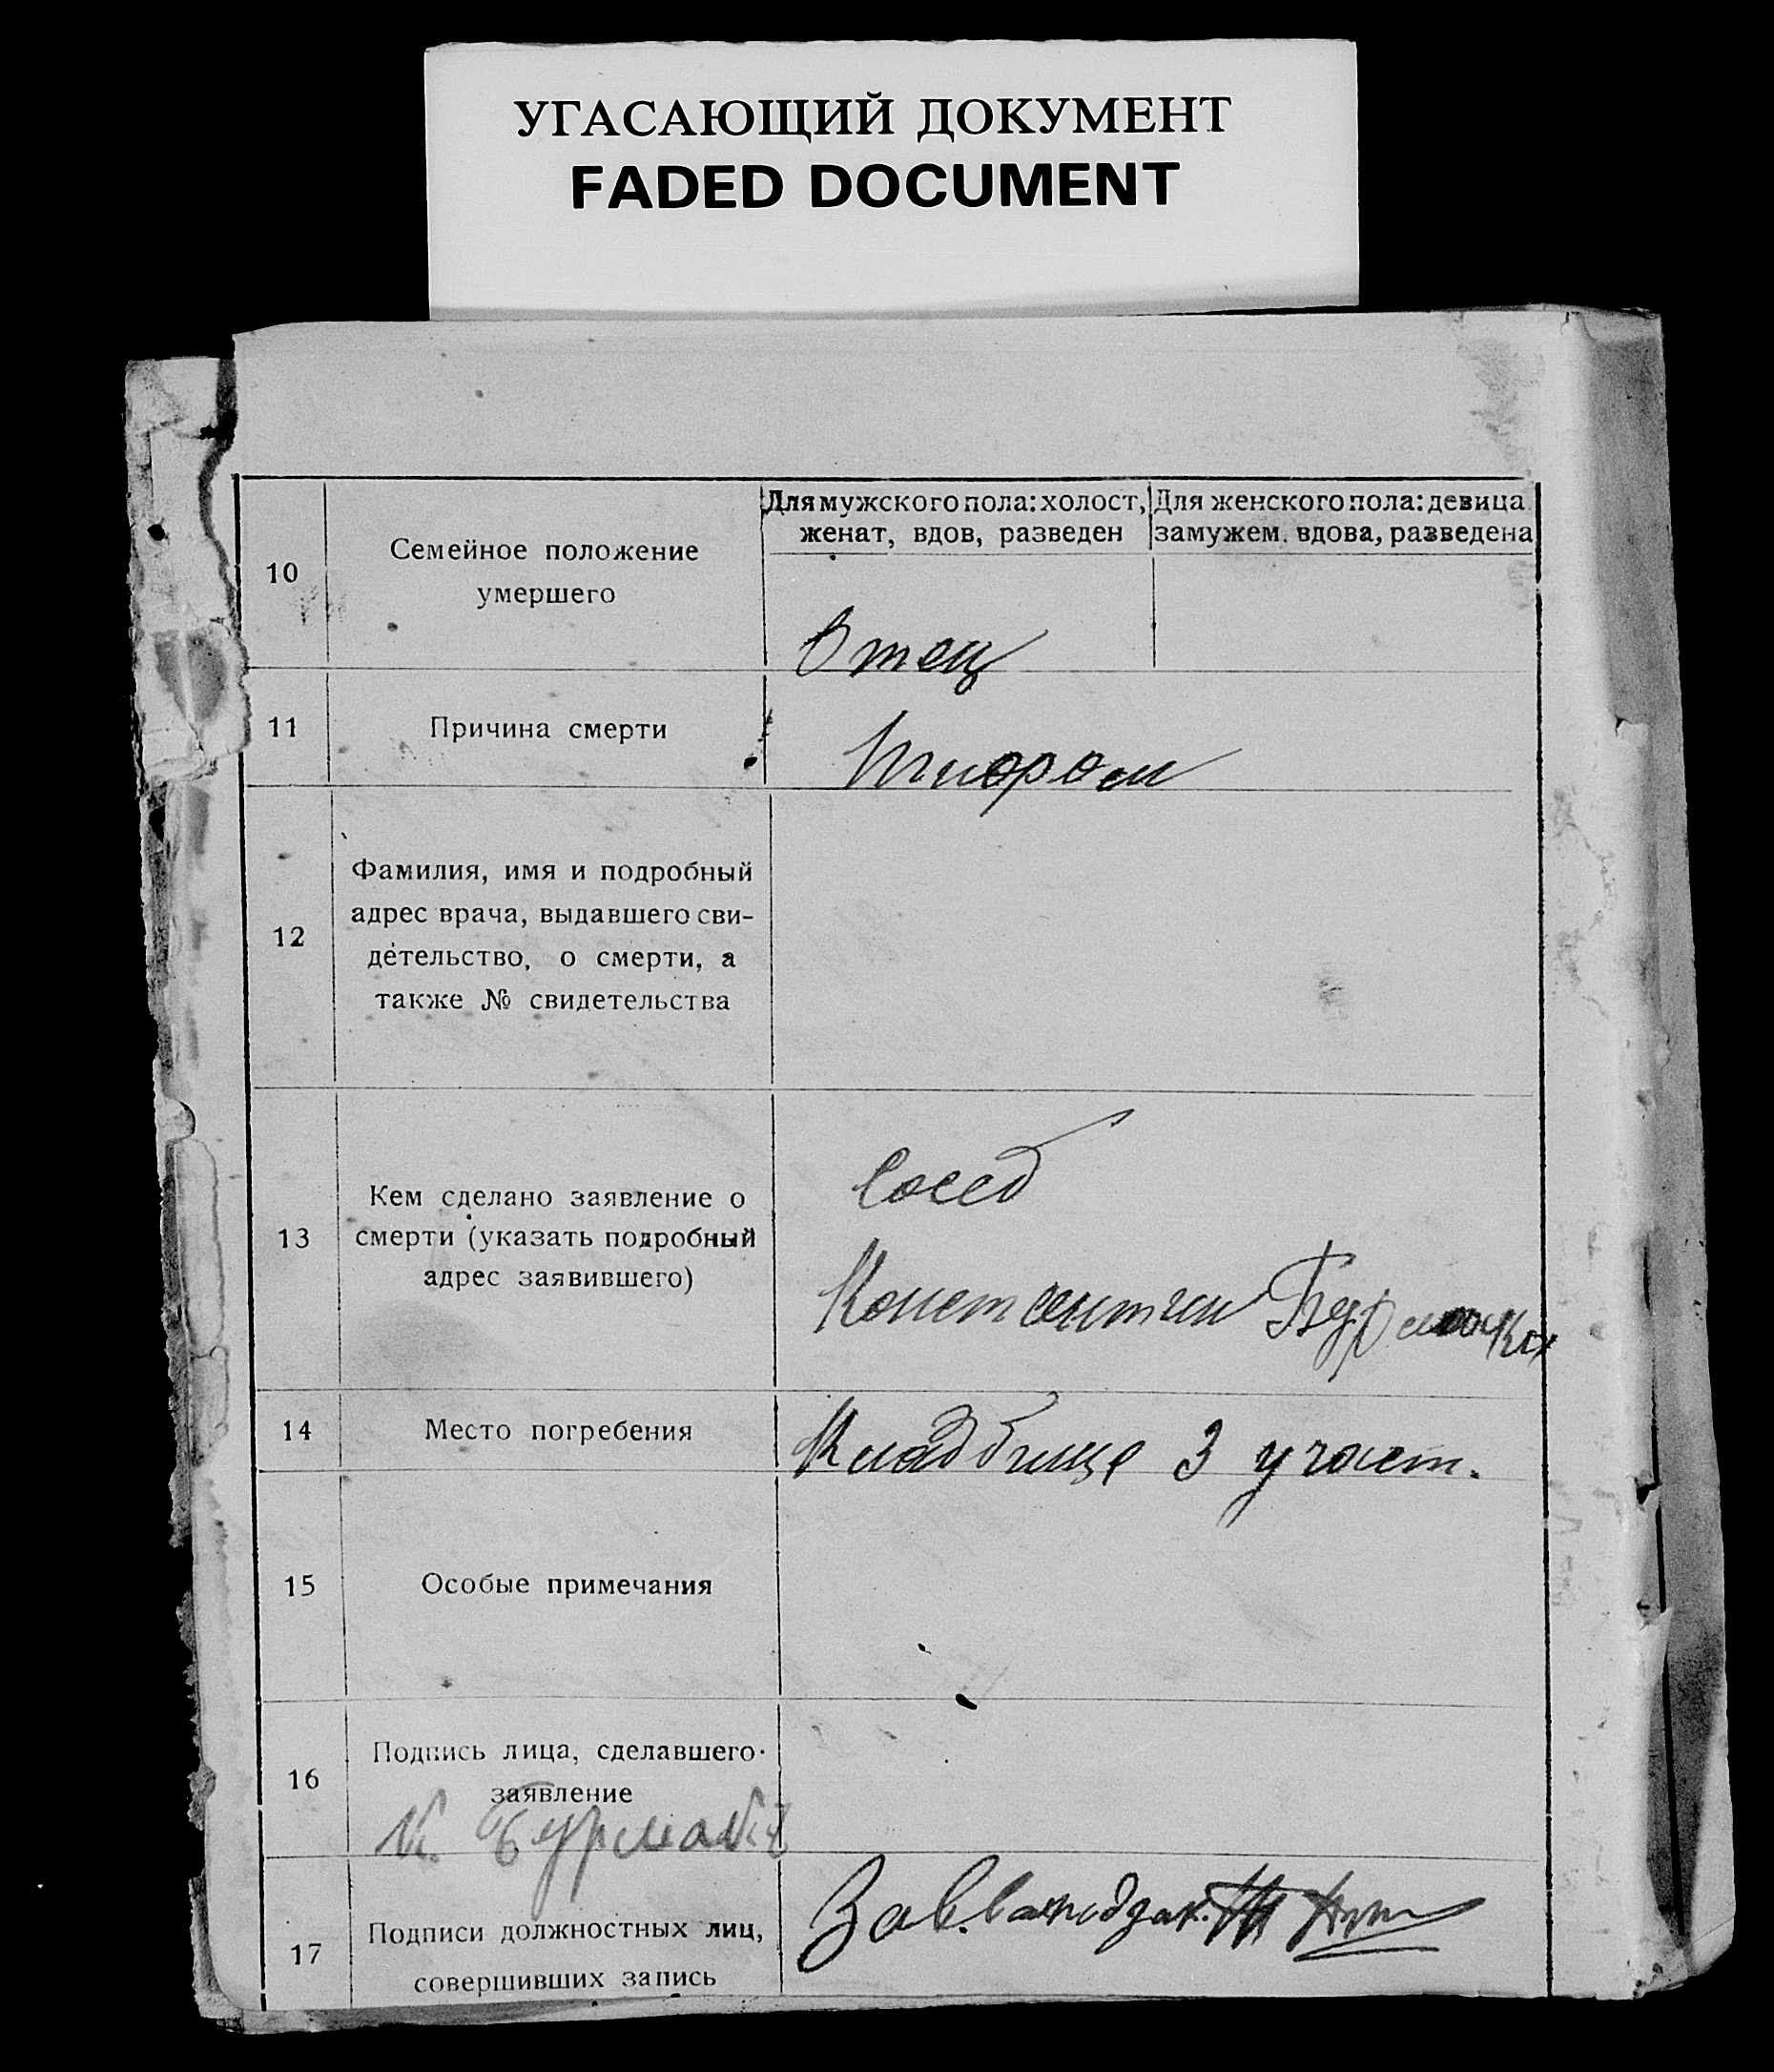 УГАСАЮЩИЙ ДОКУМЕНТ
FADED DOCUMENT
10
Семейное положение
умершего
Для мужского пола: холост,
женат, вдов, разведен
Для женского пола: девица
замужем. вдова, разведена
Отец
11
Причина смерти
12
Фамилия, имя и подробный
адрес врача, выдавшего сви-
детельство, о смерти, а
также № свидетельства
13
Кем сделано заявление о
смерти (указать подробный
адрес заявившего)
Сосед
14
Место погребения
Кладбище 3 участ.
15
Особые примечания
16
Подпись лица, сделавшего
заявление
К.
17
Подписи должностных лиц,
совершивших запись
Зав.